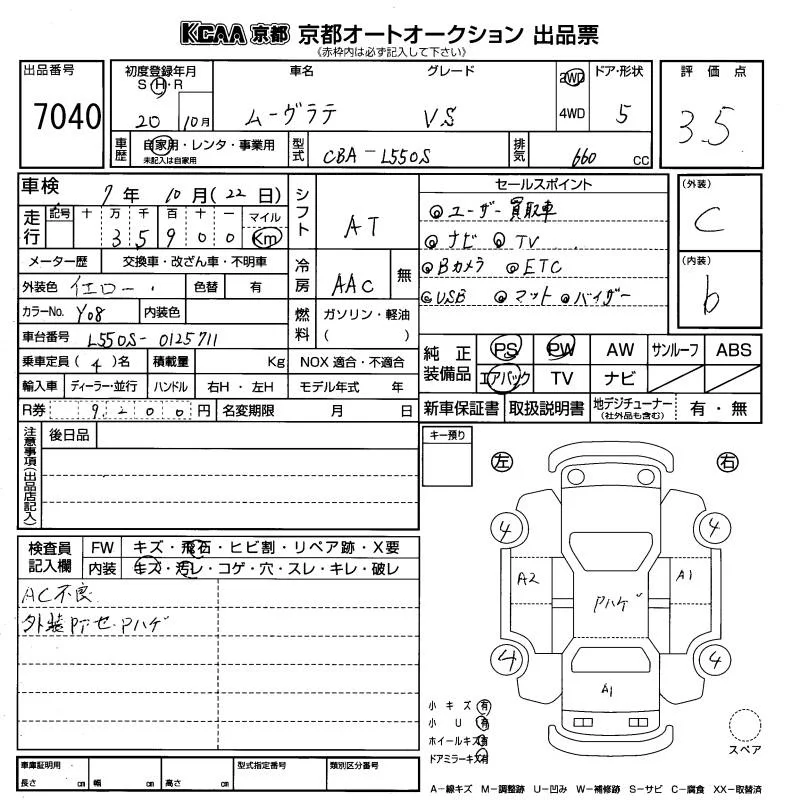 KCAA 京都 京都オートオークション 出品票
《赤枠内は必ず記入して下さい》
出品番号 7040
初度登録年月 S・H・R 20 10月
車名 ムーヴラテ
グレード VS
2WD 4WD
ドア・形状 5
評価点 3.5
車歴 自家用・レンタ・事業用 未記入は自家用
型式 CBA-L550S
排気 660 CC
車検 7年 10月(22日)
走行 記号 十 万 千 百 十 一 マイル Km
3 5 9 0 0
メーター歴 交換車・改ざん車・不明車
外装色 イエロー 色替 有
カラーNo. Y08 内装色
車台番号 L550S-0125711
乗車定員 (4)名 積載量 Kg
輸入車 ディーラー・並行 ハンドル 右H・左H
R券 9,200円 名変期限 月 日
シフト AT
冷房 AAC 無
燃料 ガソリン・軽油 ( )
NOX 適合・不適合
モデル年式 年
セールスポイント
◎ユーザー買取車
◎ナビ ◎TV
◎Bカメラ ◎ETC
◎USB ◎マット ◎バイザー
(外装) C
(内装) b
純正装備品 PS PW AW サンルーフ ABS
エアバック TV ナビ
新車保証書 取扱説明書 地デジチューナー (社外品も含む) 有・無
注意事項(出品店記入) 後日品
キー預り
左 右
検査員記入欄 FW キズ・飛石・ヒビ割・リペア跡・X要
内装 キズ・汚レ・コゲ・穴・スレ・キレ・破レ
AC不良
外装Pアセ Pハゲ
4 4
A2 A1
Pハゲ
4 4
A1
小キズ 有
小U 有
ホイールキズ 有
ドアミラーキズ 有
スペア
車庫証明用 長さ cm 幅 cm 高さ cm
型式指定番号 類別区分番号
A-線キズ M-調整跡 U-凹み W-補修跡 S-サビ C-腐食 XX-取替済